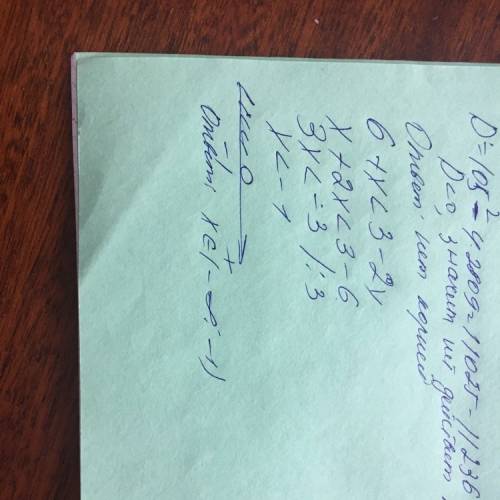 D = 105² - 4·2809 = 11025 - 11236
D<0, значит нет действит.
Ответ: нет корней
6+x<3-2x
x+2x<3-6
3x<-3 /:3
x<-1
Ответ: x∈(-∞; -1)